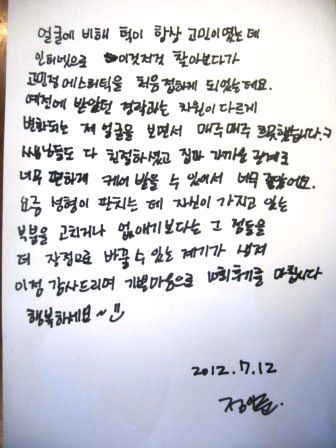 얼굴에 비해 턱이 항상 고민이였는데
인터넷으로 이것저것 찾아보다가
고민정에스테틱을 처음 접하게 되었는데요.
예전에 받았던 경락과는 차원이 다르게
변화되는 저 얼굴을 보면서 매주매주 흐뭇했습니다.ㅋ
쌤님들도 다 친절하셨고 집과 가까운 관계로
너무 편하게 케어 받을 수 있어서 너무 좋았어요.
요즘 성형이 판치는 데 자신이 가지고 있는
부분을 고치거나 없애기보다는 그 점들을
더 장점으로 바꿀 수 있는 계기가 생겨
이점 감사드리며 기쁜마음으로 10회후기를 마칩니다
행복하세요~
2012.7.12